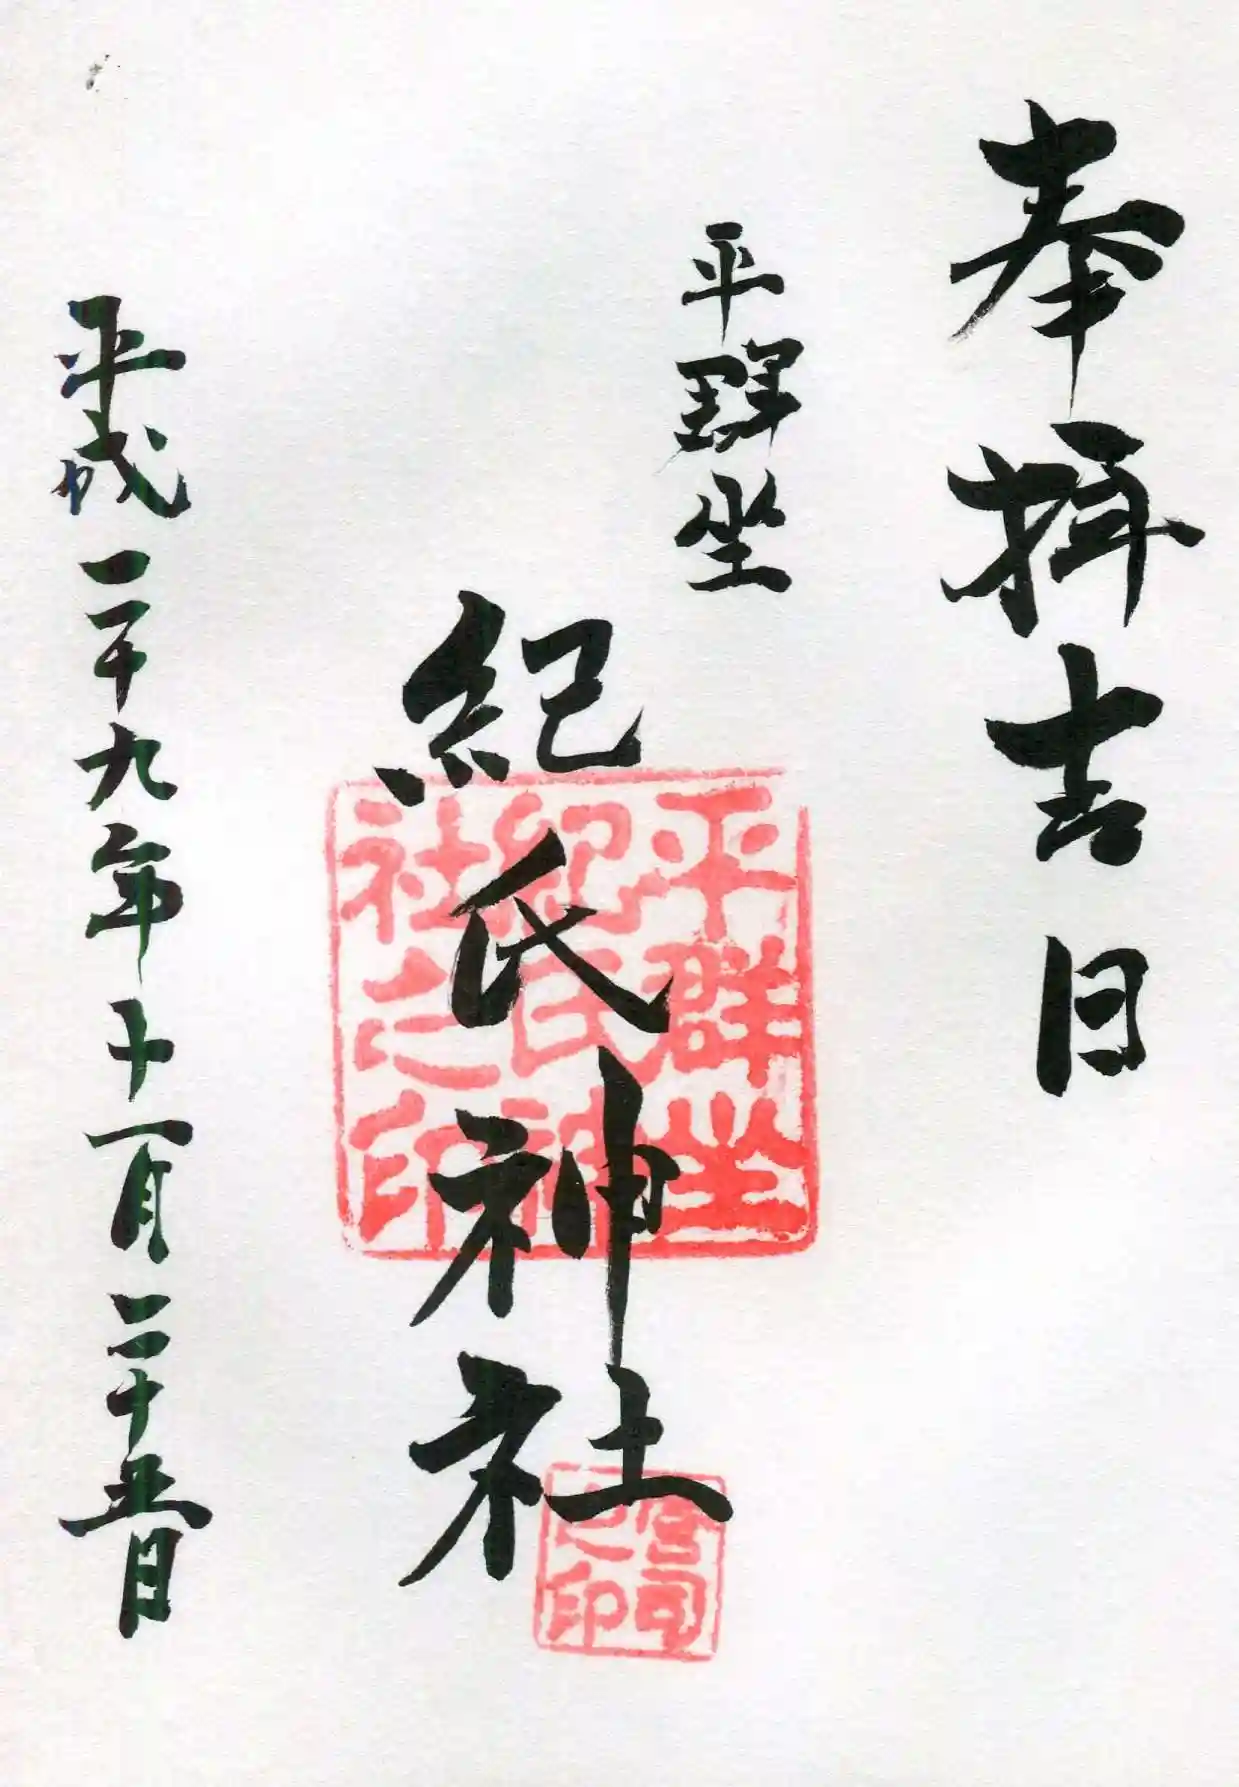 奉拝吉日
平群坐
紀氏神社
平成二十九年十一月二十五日
平群坐
紀氏神
社之印
宮司
之印